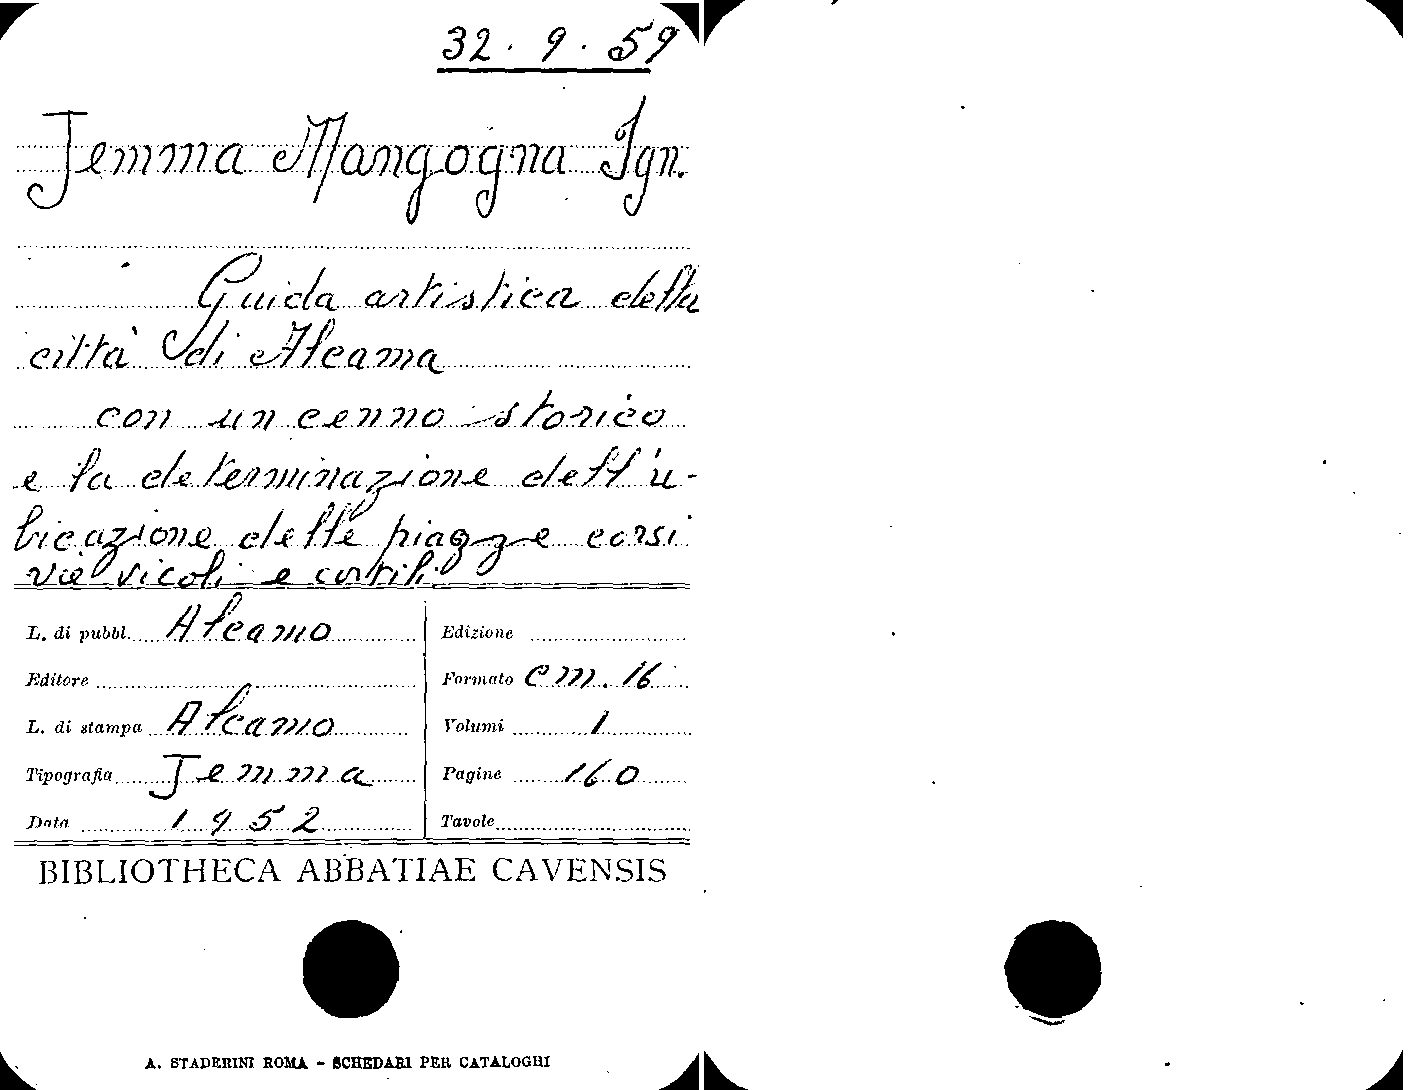 32. 9. 59
Jemma Mangogna Ign.
Guida artistica della
città di Alcama
con un cenno storico
e la determinazione dell'u-
bicazione delle piazze corsi
vie vicoli e cortili
L. di pubbl. Alcamo
Editore
L. di stampa Alcamo
Tipografia Jemma
Data 1952
Edizione
Formato cm. 16
Volumi 1
Pagine 160
Tavole
BIBLIOTHECA ABBATIAE CAVENSIS
A. STADERINI ROMA - SCHEDARI PER CATALOGHI